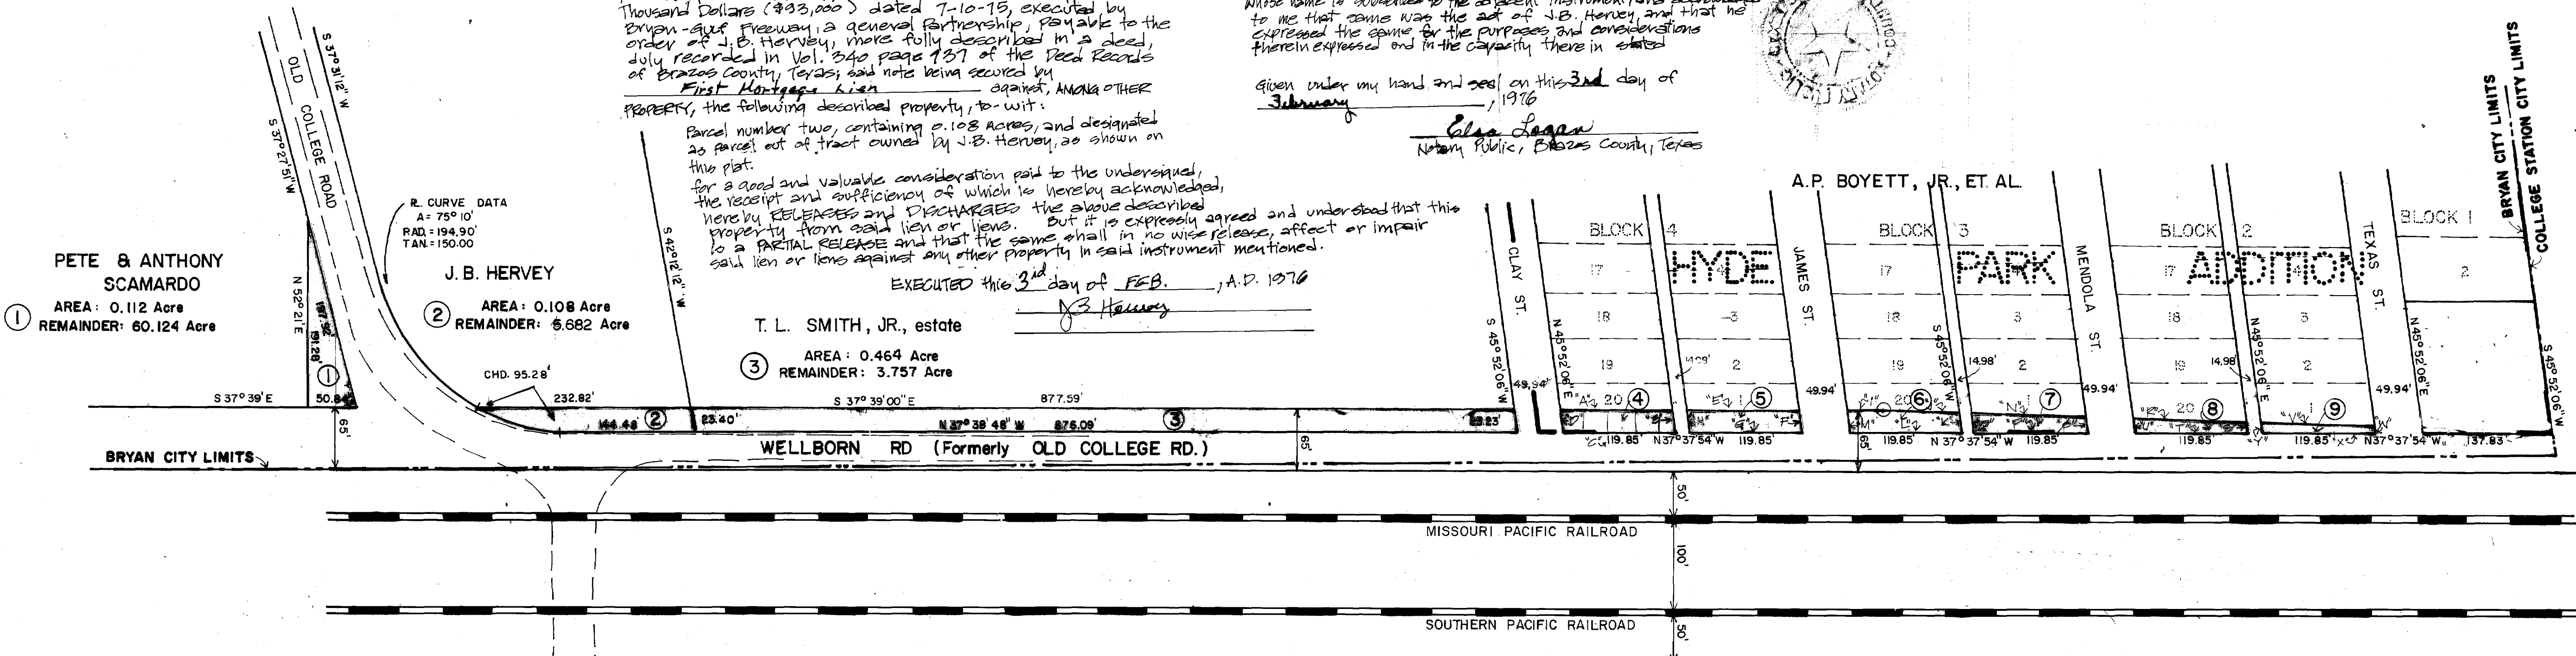 Thousand Dollars ($93,000) dated 7-10-75, executed by
Bryan-Gulf Freeway, a general Partnership, payable to the
order of J.B. Hervey, more fully described in a deed,
duly recorded in Vol. 340 page 737 of the Deed Records
of Brazos County, Texas; said note being secured by
First Mortgage Lien against, AMONG OTHER
PROPERTY, the following described property, to-wit:
Parcel number two, containing 0.108 Acres, and designated
as parcel out of tract owned by J.B. Hervey, as shown on
this plat.
for a good and valuable consideration paid to the undersigned,
the receipt and sufficiency of which is hereby acknowledged,
hereby RELEASES and DISCHARGES the above described
property from said lien or liens. But it is expressly agreed and understood that this
is a PARTIAL RELEASE and that the same shall in no wise release, affect or impair
said lien or liens against any other property in said instrument mentioned.
EXECUTED this 3rd day of FEB., A.D. 1976
J B Hervey
whose name is subscribed to the adjacent instrument, and acknowledged
to me that same was the act of J.B. Hervey, and that he
expressed the same for the purposes and considerations
therein expressed and in the capacity there in stated
Given under my hand and seal on this 3rd day of
February, 1976
Elsa Logan
Notary Public, Brazos County, Texas
OLD COLLEGE ROAD
S 37° 31' 12" W
S 37° 27' 51" W
R. CURVE DATA
A = 75° 10'
RAD. = 194.90'
TAN. = 150.00
PETE & ANTHONY
SCAMARDO
1 AREA: 0.112 Acre
REMAINDER: 60.124 Acre
N 52° 21' E
191.28'
1
S 37° 39' E
50.84
65'
J. B. HERVEY
2 AREA: 0.108 Acre
REMAINDER: 5.682 Acre
S 42° 12' 12" W
T. L. SMITH, JR., estate
3 AREA: 0.464 Acre
REMAINDER: 3.757 Acre
CHD. 95.28'
232.82'
S 37° 39' 00" E
877.59'
144.48'
2
23.40'
N 37° 38' 48" W
876.09'
3
23.23'
65'
WELLBORN RD (Formerly OLD COLLEGE RD.)
BRYAN CITY LIMITS
A.P. BOYETT, JR., ET. AL.
HYDE PARK ADDITION
CLAY ST.
S 45° 52' 06" W
49.94'
N 45° 52' 06" E
BLOCK 4
17
18
19
"A" 20 4
3
2
14.98'
"E" 1 5
JAMES ST.
49.94'
BLOCK 3
17
18
19
20 6
S 45° 52' 06" W
14.98'
3
2
"N" 1 7
MENDOLA ST.
49.94'
BLOCK 2
17
18
19
20 8
14.98'
N 45° 52' 06" E
3
2
"V" 1 9
TEXAS ST.
49.94'
N 45° 52' 06" E
BLOCK 1
2
S 45° 52' 06" W
BRYAN CITY LIMITS
COLLEGE STATION CITY LIMITS
119.85' N 37° 37' 54" W 119.85'
65'
119.85' N 37° 37' 54" W 119.85'
119.85' "Y" 119.85' "X" N 37° 37' 54" W 137.83'
50'
MISSOURI PACIFIC RAILROAD
100'
SOUTHERN PACIFIC RAILROAD
50'